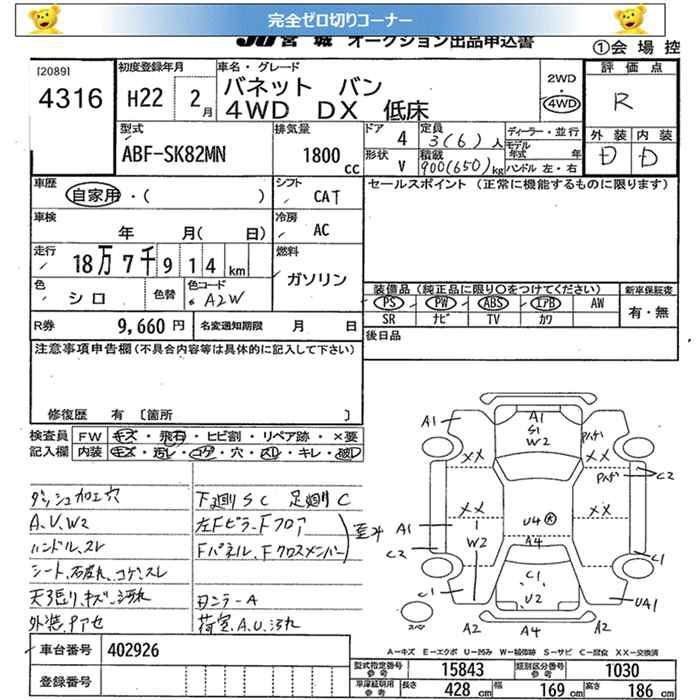 完全ゼロ切りコーナー
JU宮城 オークション出品申込書
①会場控
[2089] 初度登録年月 車名・グレード 2WD・4WD 評価点
4316 H22 2月 バネット バン R
4WD DX 低床
外装 内装
D D
型式 排気量 ドア 4 定員 3(6)人 ディーラー・並行
ABF-SK82MN 1800cc 形状 V 積載 900(650)kg モデル年式 年 ハンドル 左・右
車歴 自家用・( ) シフト CAT セールスポイント (正常に機能するものに限ります)
車検 年 月(日) 冷房 AC
走行 18万7千914km 燃料 ガソリン
色 シロ 色替 色コード A2W
装備品 (純正品に限り○をつけてください) 新車保証書
PS PW ABS エアB AW 有・無
SR ナビ TV カワ
R券 9,660円 名変通知期限 月 日 後日品
注意事項申告欄(不具合内容等は具体的に記入して下さい)
修復歴 有 [箇所 ]
検査員 FW キズ・飛石・ヒビ割・リペア跡・×要
記入欄 内装 キズ・汚レ・コゲ・穴・スレ・キレ・破レ
ダッシュ加工穴 下廻りSC 足廻りC
A,U,W2 左Fピラー、Fフロア
ハンドル、スレ Fパネル、Fクロスメンバー
シート、コゲ、スレ
天張り、キズ、汚れ ロンラーA
外装 荷室、A.U.汚れ
A1 A1 S1 W2
XX XX C2
A1 C2 1 W2 XX U4 XX A4 C1
C1 C1 U2 UA1
スペア A2 A4 A2
A−キズ E−エクボ U−凹み W−補修跡 S−サビ C−腐食 XX−交換済
車台番号 402926
登録番号
型式指定番号 参考 15843 類別区分番号 参考 1030
車庫証明用 参考 長さ 428cm 幅 169cm 高さ 186cm